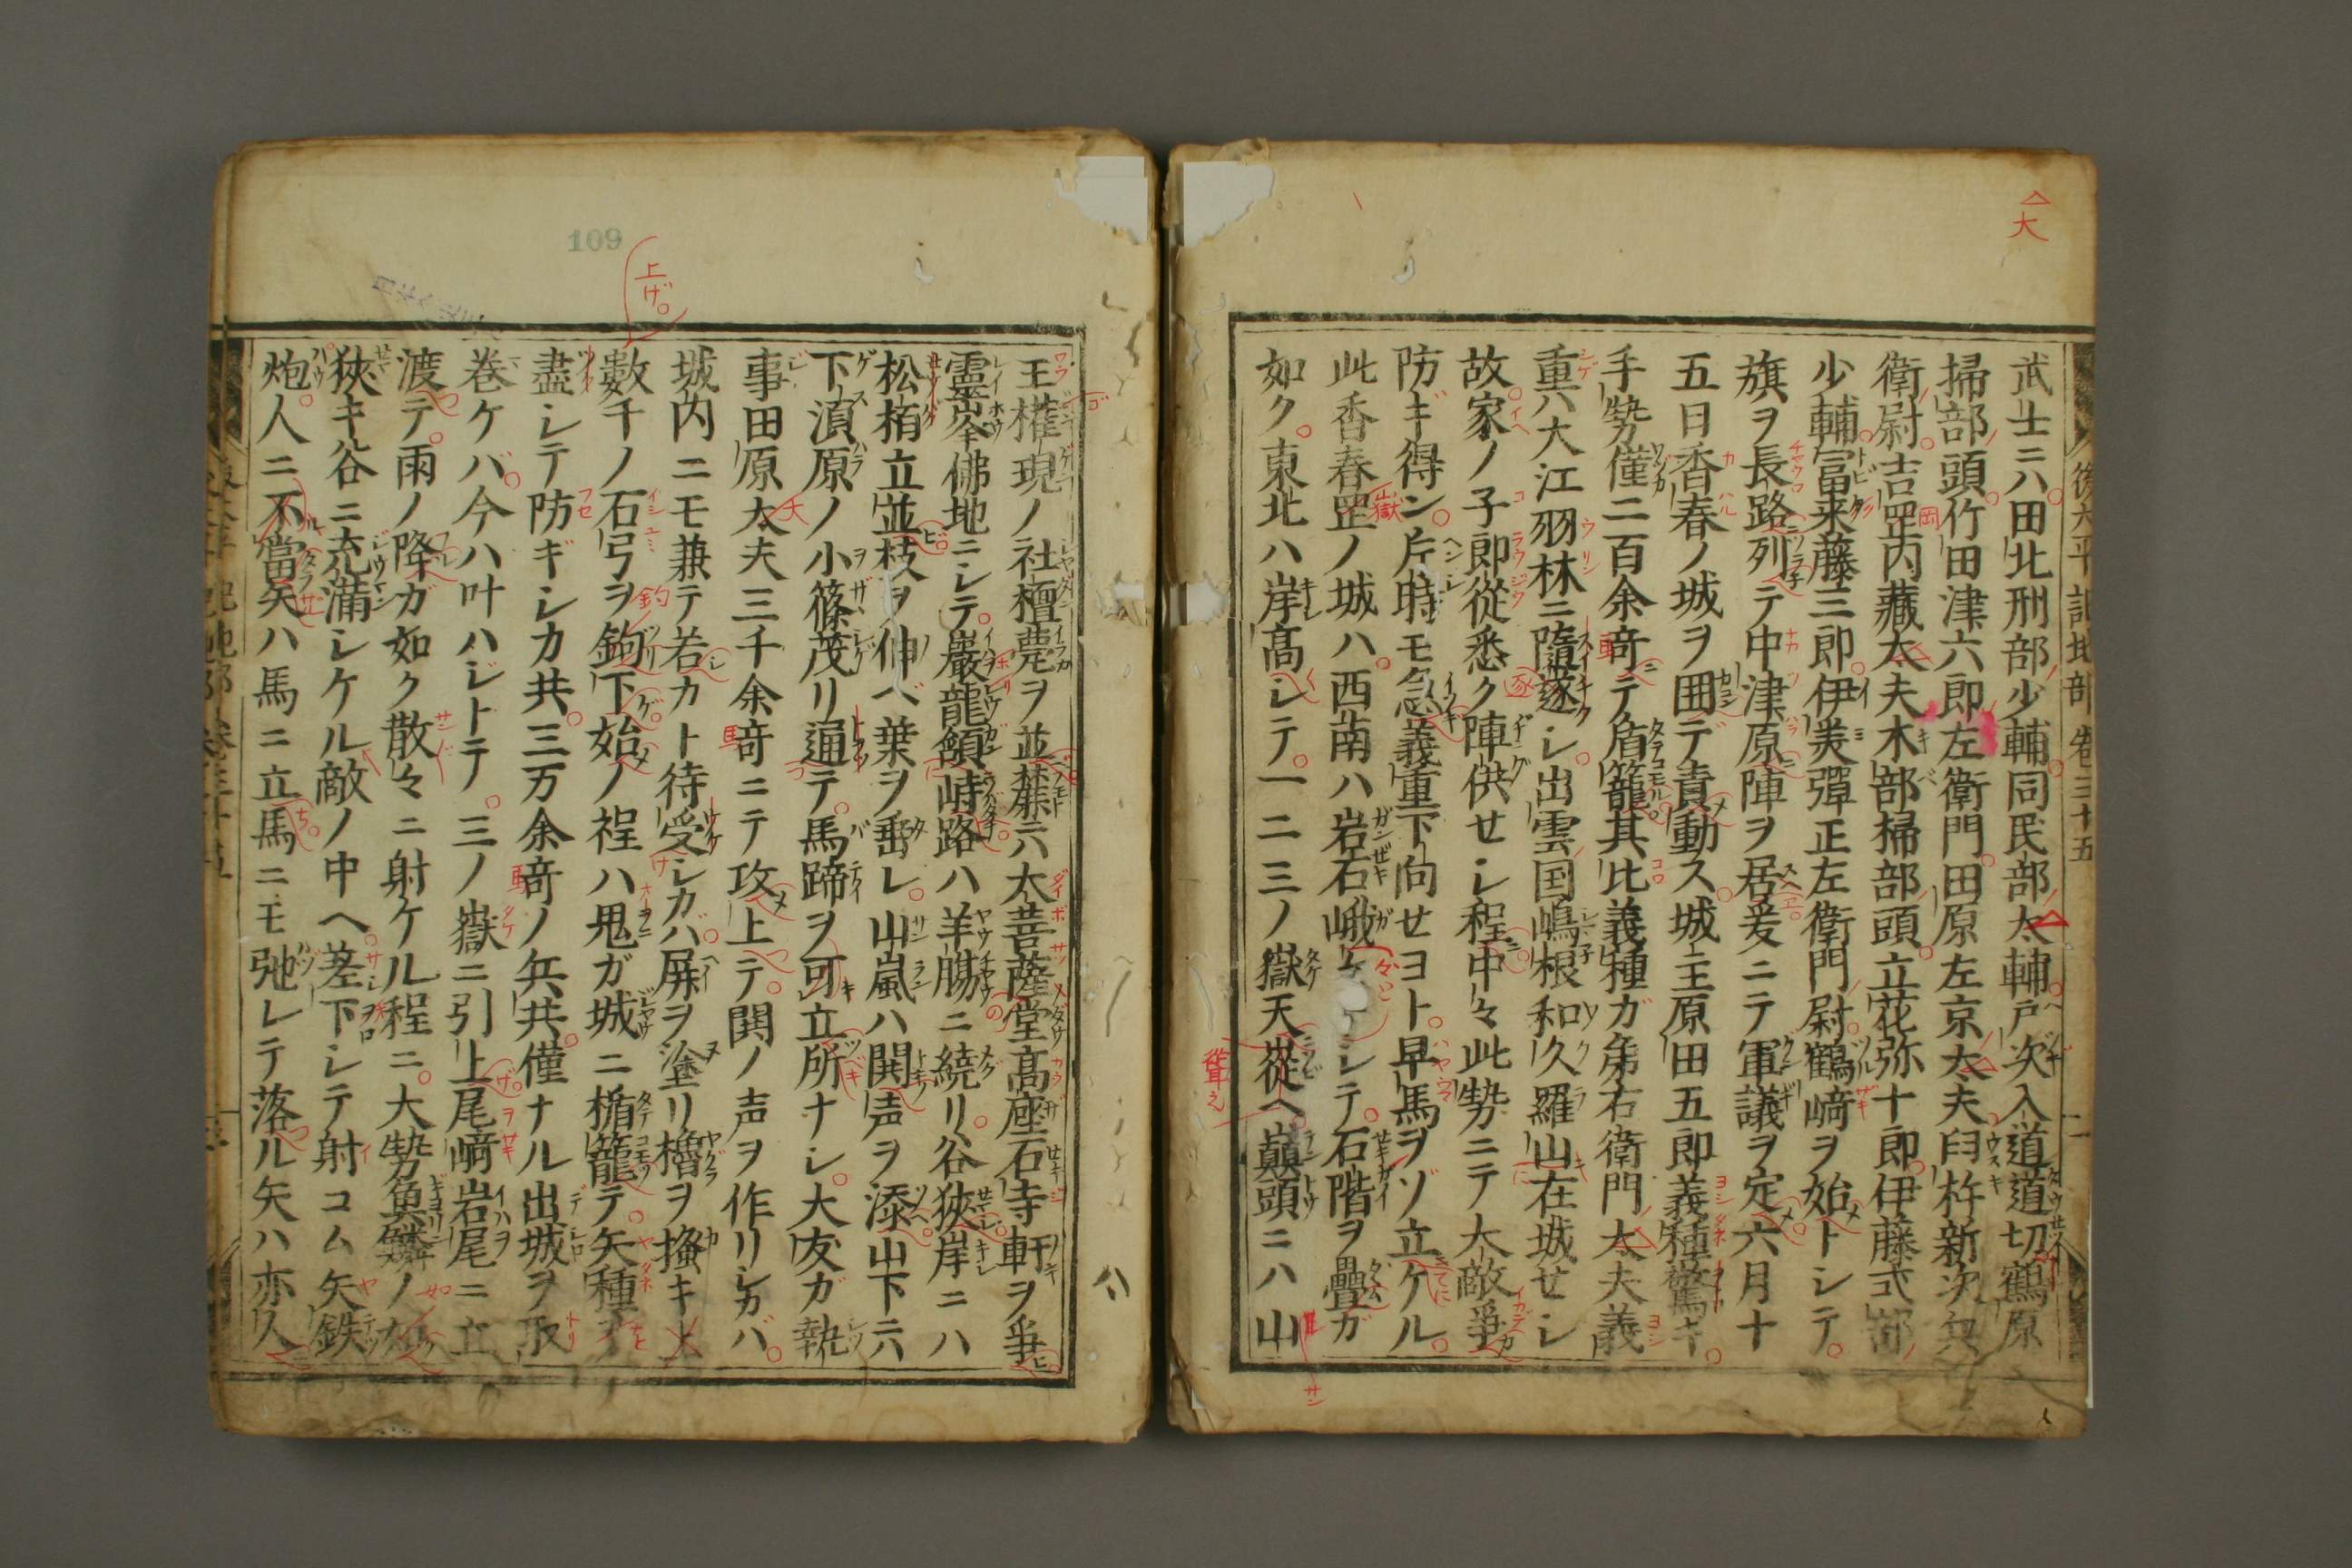 後太平記地部 巻三十五
武士ニハ田北刑部少輔同民部太輔戸次入道道切鶴原
掃部頭竹田津六郎左衛門田原左京太夫臼杵新次兵
衛尉吉岡内藏太夫木部掃部頭立花弥十郎伊藤式部
少輔冨来藤三郎伊美彈正左衛門尉鶴﨑ヲ始トシテ
旗ヲ長路列テ中津原陣ヲ居爰ニテ軍議ヲ定六月十
五日香春ノ城ヲ囲デ責動ス城主原田五郎義種驚キ
手勢僅二百余竒テ盾籠其比義種ガ弟右衛門太夫義
重ハ大江羽林ニ隨遂シ出雲国嶋根和久羅山在城セシ
故家ノ子郎從悉ク陣供セシ程中々此勢ニテ大敵爭
防ギ得ン片時モ急義重下向セヨト早馬ヲゾ立ケル
此香春罡ノ城ハ西南ハ岩石峨々トシテ石階ヲ疊ガ
如ク東北ハ岸髙シテ一二三ノ嶽天從ヘ巔頭ニハ山
王權現ノ社檀甍ヲ並麓ニハ大菩薩堂髙座石寺軒ヲ爭
靈峯佛地ニシテ巖龍頷峙路ハ羊膓ニ繞リ谷狹岸ニハ
松栢立並枝ヲ伸ベ葉ヲ垂レ山嵐ハ閧声ヲ添山下ニハ
下湏原ノ小篠茂リ逼テ馬蹄ヲ可立所ナシ大友ガ執
事田原太夫三千余竒ニテ攻上テ閧ノ声ヲ作リシカバ
城内ニモ兼テ若カト待受シカバ屏ヲ塗リ櫓ヲ搔キ上
數千ノ石弓ヲ鉤下始ノ程ハ鬼ガ城ニ楯籠テ矢種ヲ
盡シテ防ギシカ共三万余竒ノ兵共僅ナル出城ヲ取
巻ケバ今ハ叶ハジトテ三ノ嶽ニ引上尾﨑岩尾ニ立
渡テ雨ノ降ガ如ク散々ニ射ケル程ニ大勢魚鱗ノ如
狹キ谷ニ充滿シケル敵ノ中ヘ差下シテ射コム矢鉄
炮人ニ不當矢ハ馬ニ立馬ニモ弛レテ落ル矢ハ亦人
109
上げ
大